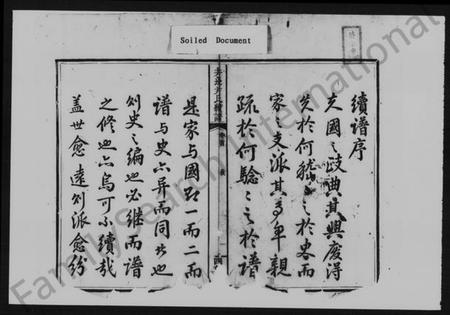 Soiled Document
續譜序
夫國之政典其興廢得
失於何稽之於畧而
家之支派其尊卑親
疏於何驗之於譜
是家與國一而二而
譜與史亦異而同者也
則史之編也必繼而譜
之修也亦烏可不續哉
蓋世愈遠則派愈紛
FamilySearch International